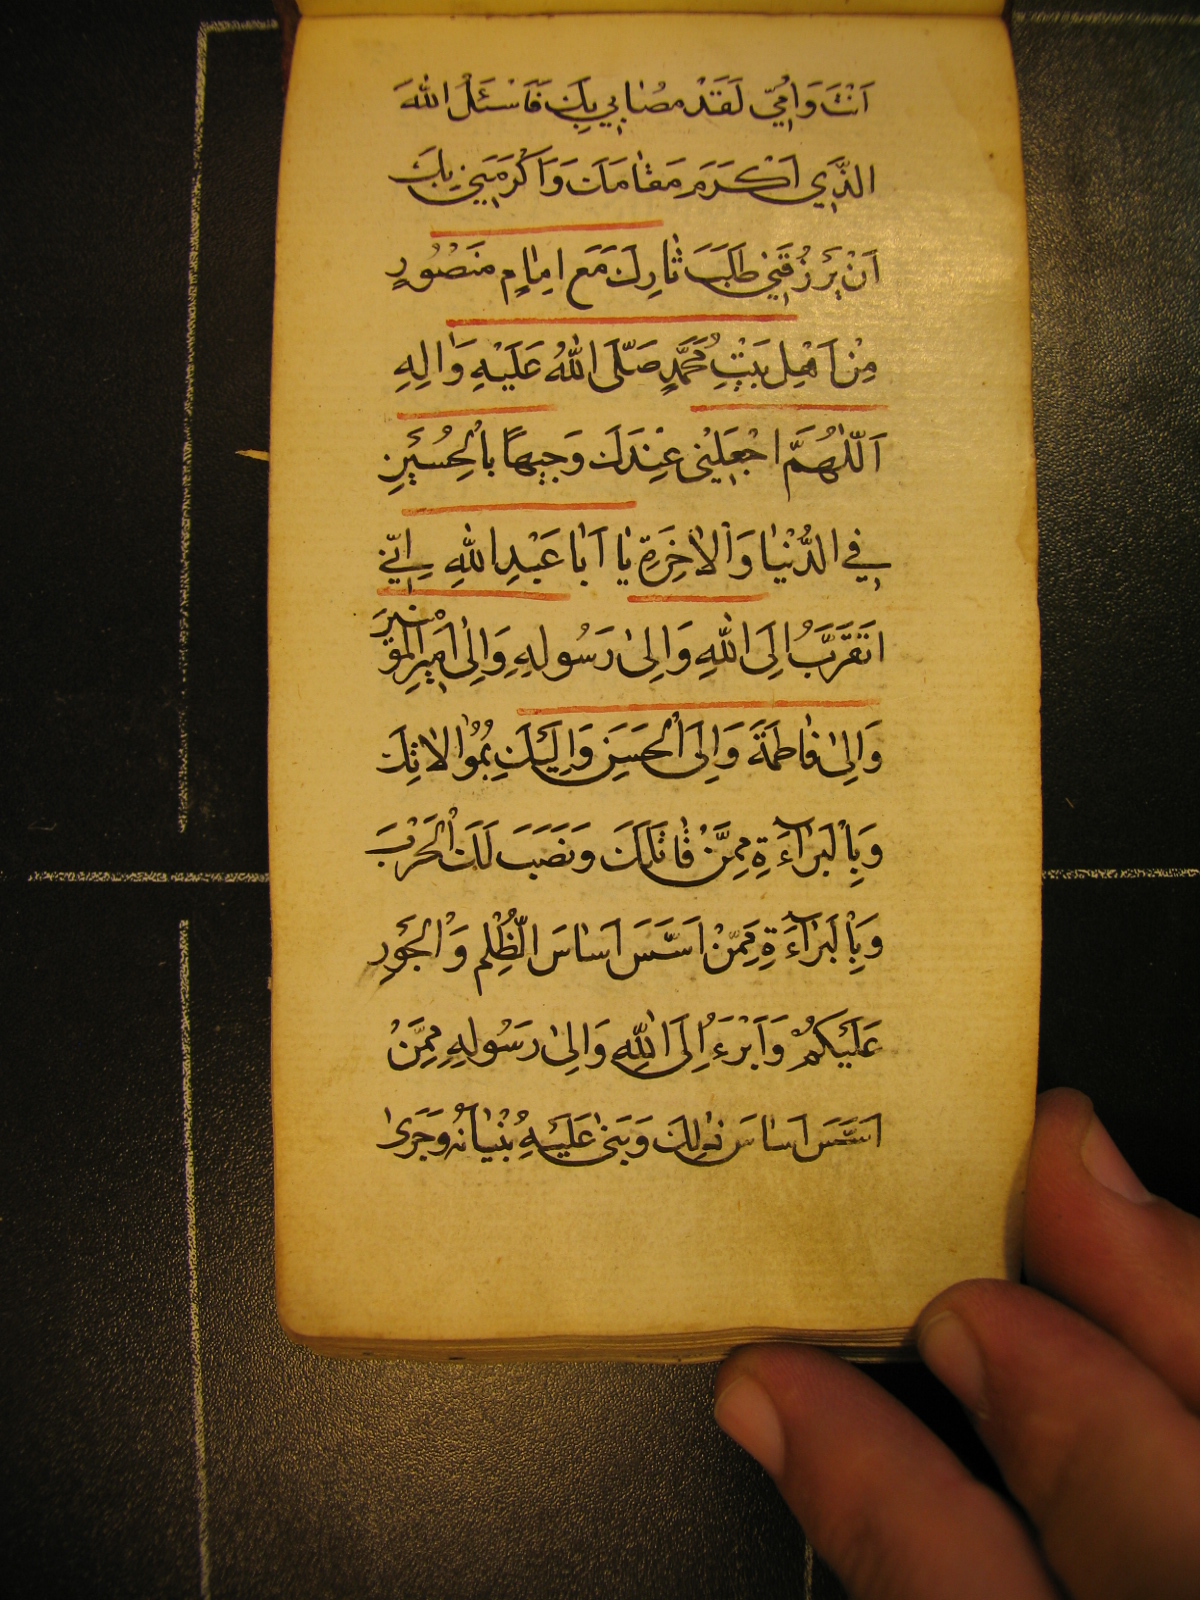 اَنْتَ وَاُمِّي لَقَدْ مُصٰابِي بِكَ فَاَسْئَلُ اللّٰهَ
الَّذِي اَكْرَمَ مَقٰامَكَ وَاَكْرَمَنِي بِكَ
اَنْ يَرْزُقَنِي طَلَبَ ثٰارِكَ مَعَ اِمٰامٍ مَنْصُورٍ
مِنْ اَهْلِ بَيْتِ مُحَمَّدٍ صَلَّى اللّٰهُ عَلَيْهِ وَاٰلِهِ
اَللّٰهُمَّ اجْعَلْنِي عِنْدَكَ وَجِيهًا بِالْحُسَيْنِ
فِي الدُّنْيٰا وَالْاٰخِرَةِ يٰا اَبٰا عَبْدِ اللّٰهِ اِنِّي
اَتَقَرَّبُ اِلَى اللّٰهِ وَاِلىٰ رَسُولِهِ وَاِلىٰ اَمِيرِ الْمُؤْمِنِيرَ
وَاِلىٰ فٰاطِمَةَ وَاِلَى الْحَسَنِ وَاِلَيْكَ بِمُوٰالٰاتِكَ
وَبِالْبَرٰآءَةِ مِمَّنْ قٰاتَلَكَ وَنَصَبَ لَكَ الْحَرْبَ
وَبِالْبَرٰآءَةِ مِمَّنْ اَسَّسَ اَسٰاسَ الظُّلْمِ وَالْجَوْرِ
عَلَيْكُمْ وَاَبْرَءُ اِلَى اللّٰهِ وَاِلىٰ رَسُولِهِ مِمَّنْ
اَسَّسَ اَسٰاسَ ذٰلِكَ وَبَنىٰ عَلَيْهِ بُنْيٰانَهُ وَجَرىٰ